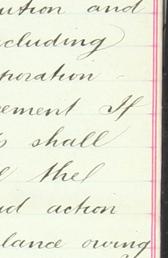 ution and
cluding
poration
ement If
shall
the
id action
lance owing